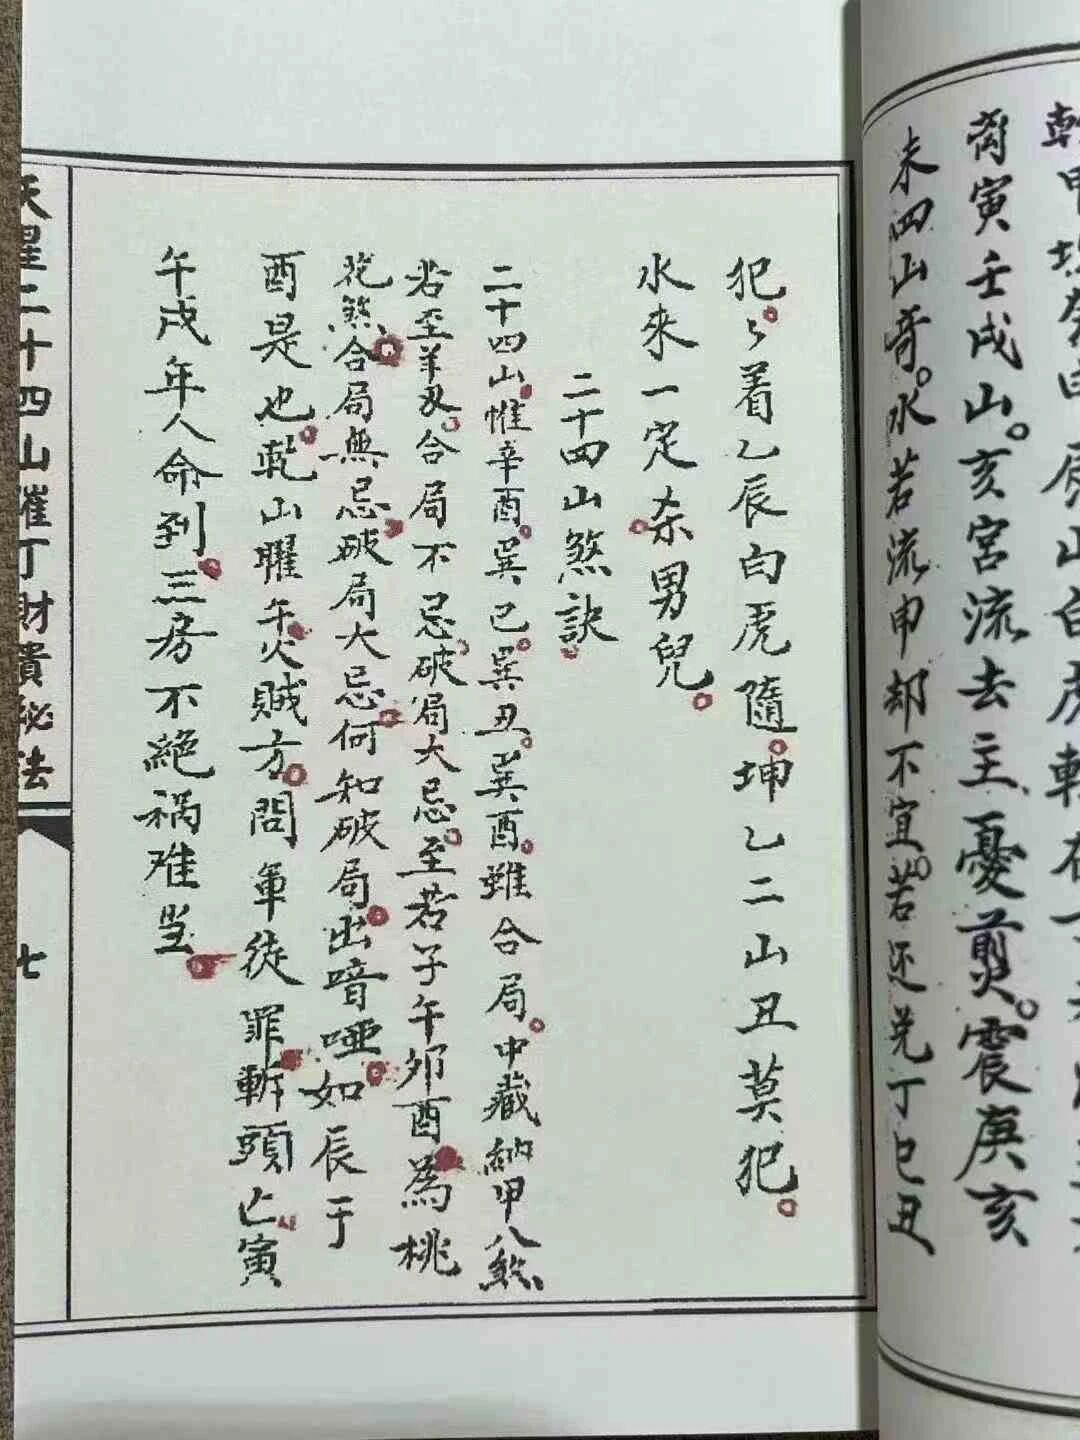 甲坎癸申辰山白虎轉在
离寅壬戌山。亥宮流去主憂煎。震庚亥
未四山奇。水若流申却不宜。若还兌丁巳丑
犯。々着乙辰白虎隨。坤乙二山丑莫犯。
水來一定杀男兒。
二十四山煞訣。
二十四山。惟辛酉。巽巳。巽丑。巽酉。雖合局。中藏納甲八煞
若至羊刃。合局不忌。破局大忌。至若子午卯酉為桃
花煞。合局無忌。破局大忌。何知破局。出喑啞。如辰于
酉是也。乾山曜午火賊方。問軍徒罪斬頭亡。寅
午戌年人命到。三房不絕禍难当。
天星二十四山催丁財貴秘法
七